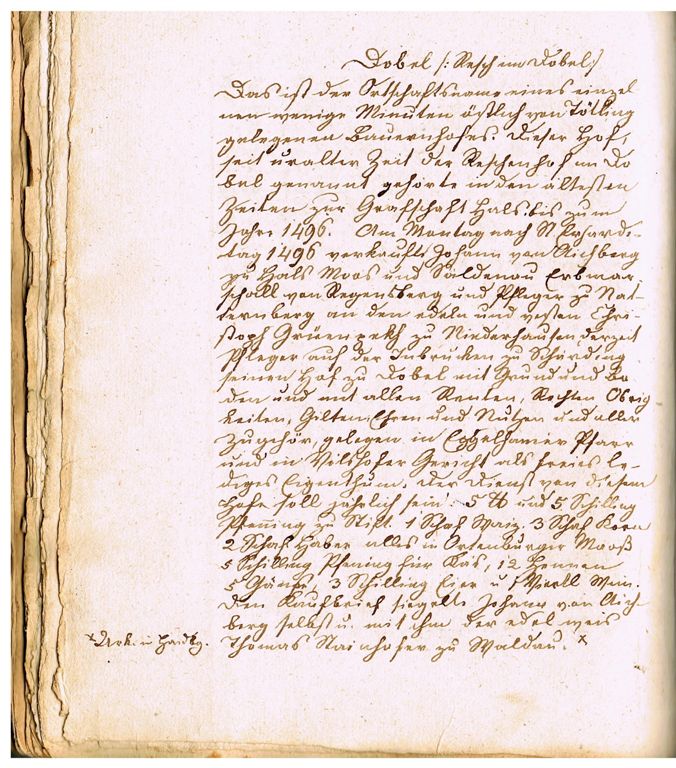 Dobel /: Resch im Dobel :/
Das ist der Ortschaftsname eines einzel
nen wenige Minuten östlich von Tölling
gelegenen Bauernhofes. Dieser Hof,
seit uralter Zeit der Reschenhof im Do
bel genannt gehörte in den ältesten
Zeiten zur Grafschaft Hals bis zum
Jahre 1496. Am Montag nach St Erhards-
tag 1496 verkaufte Johann von Aichberg
zu Hals Moos und Saldenau Erbmar
schall von Regensberg und Pfleger zu Nat-
ternberg an den edeln und vesten Chri-
stoph Grüenpekh zu Niederhausen derzeit
Pfleger auf der Inbrucken zu Schärding
seinen Hof zu Dobel mit Grund und Bo
den und mit allen Renten, Rechten Obrig
keiten, Gilten, Ehren und Nutzen und aller
Zugehör, gelegen in Egglhamer Pfarr
und in Vilshofer Gericht als freies le-
diges Eigenthum. Der Dienst von diesem
Hofe soll jährlich sein: 5 ℔ und 5 Schilling
Pfening zu Stift. 1 Schaf Waiz. 3 Schaf Korn
2 Schaf Haber alles in Ortenburger Mooß
5 Schilling Pfening für Käs, 12 Hennen
5 Gänse, 3 Schilling Eier u. Viertl Wein.
Den Kaufbrief siegelte Johann von Aich-
berg selbst u. mit ihm der edel weis
Thomas Stainhofer zu Waldau. x
x Urk. in Haidbg.